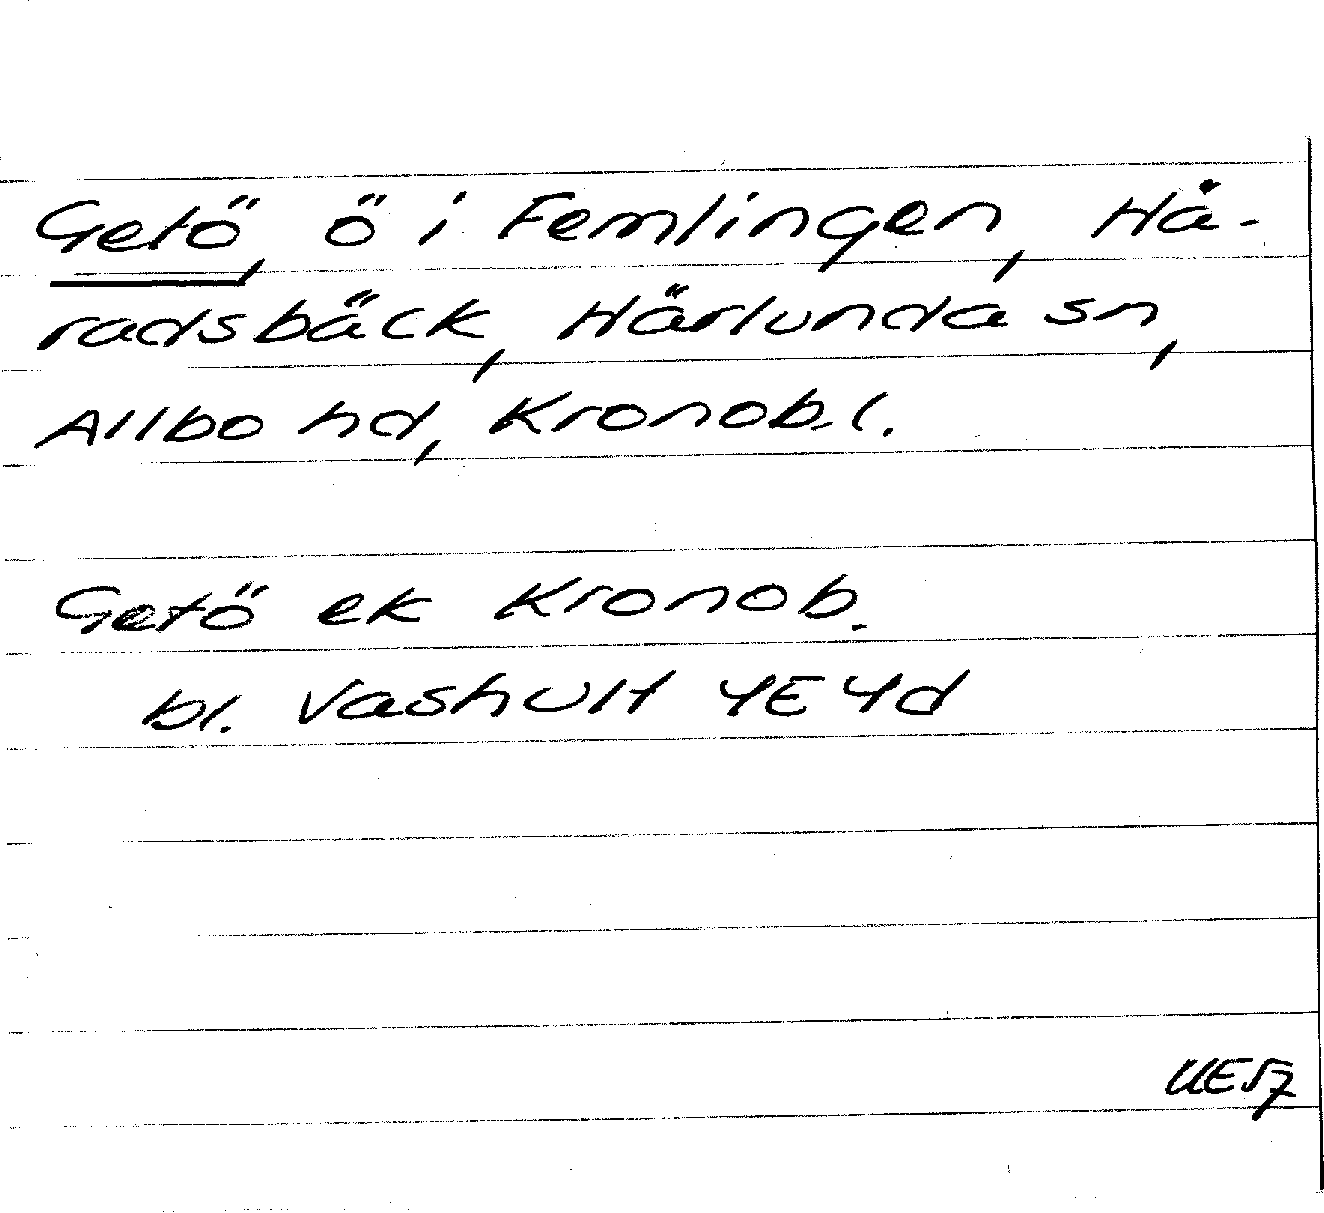 Getö, ö i Femlingen, Hå-
radsbäck, Härlunda sn,
Allbo hd, Kronob. l.
Getö ek Kronob.
bl. Vashult 4E4d
UE57